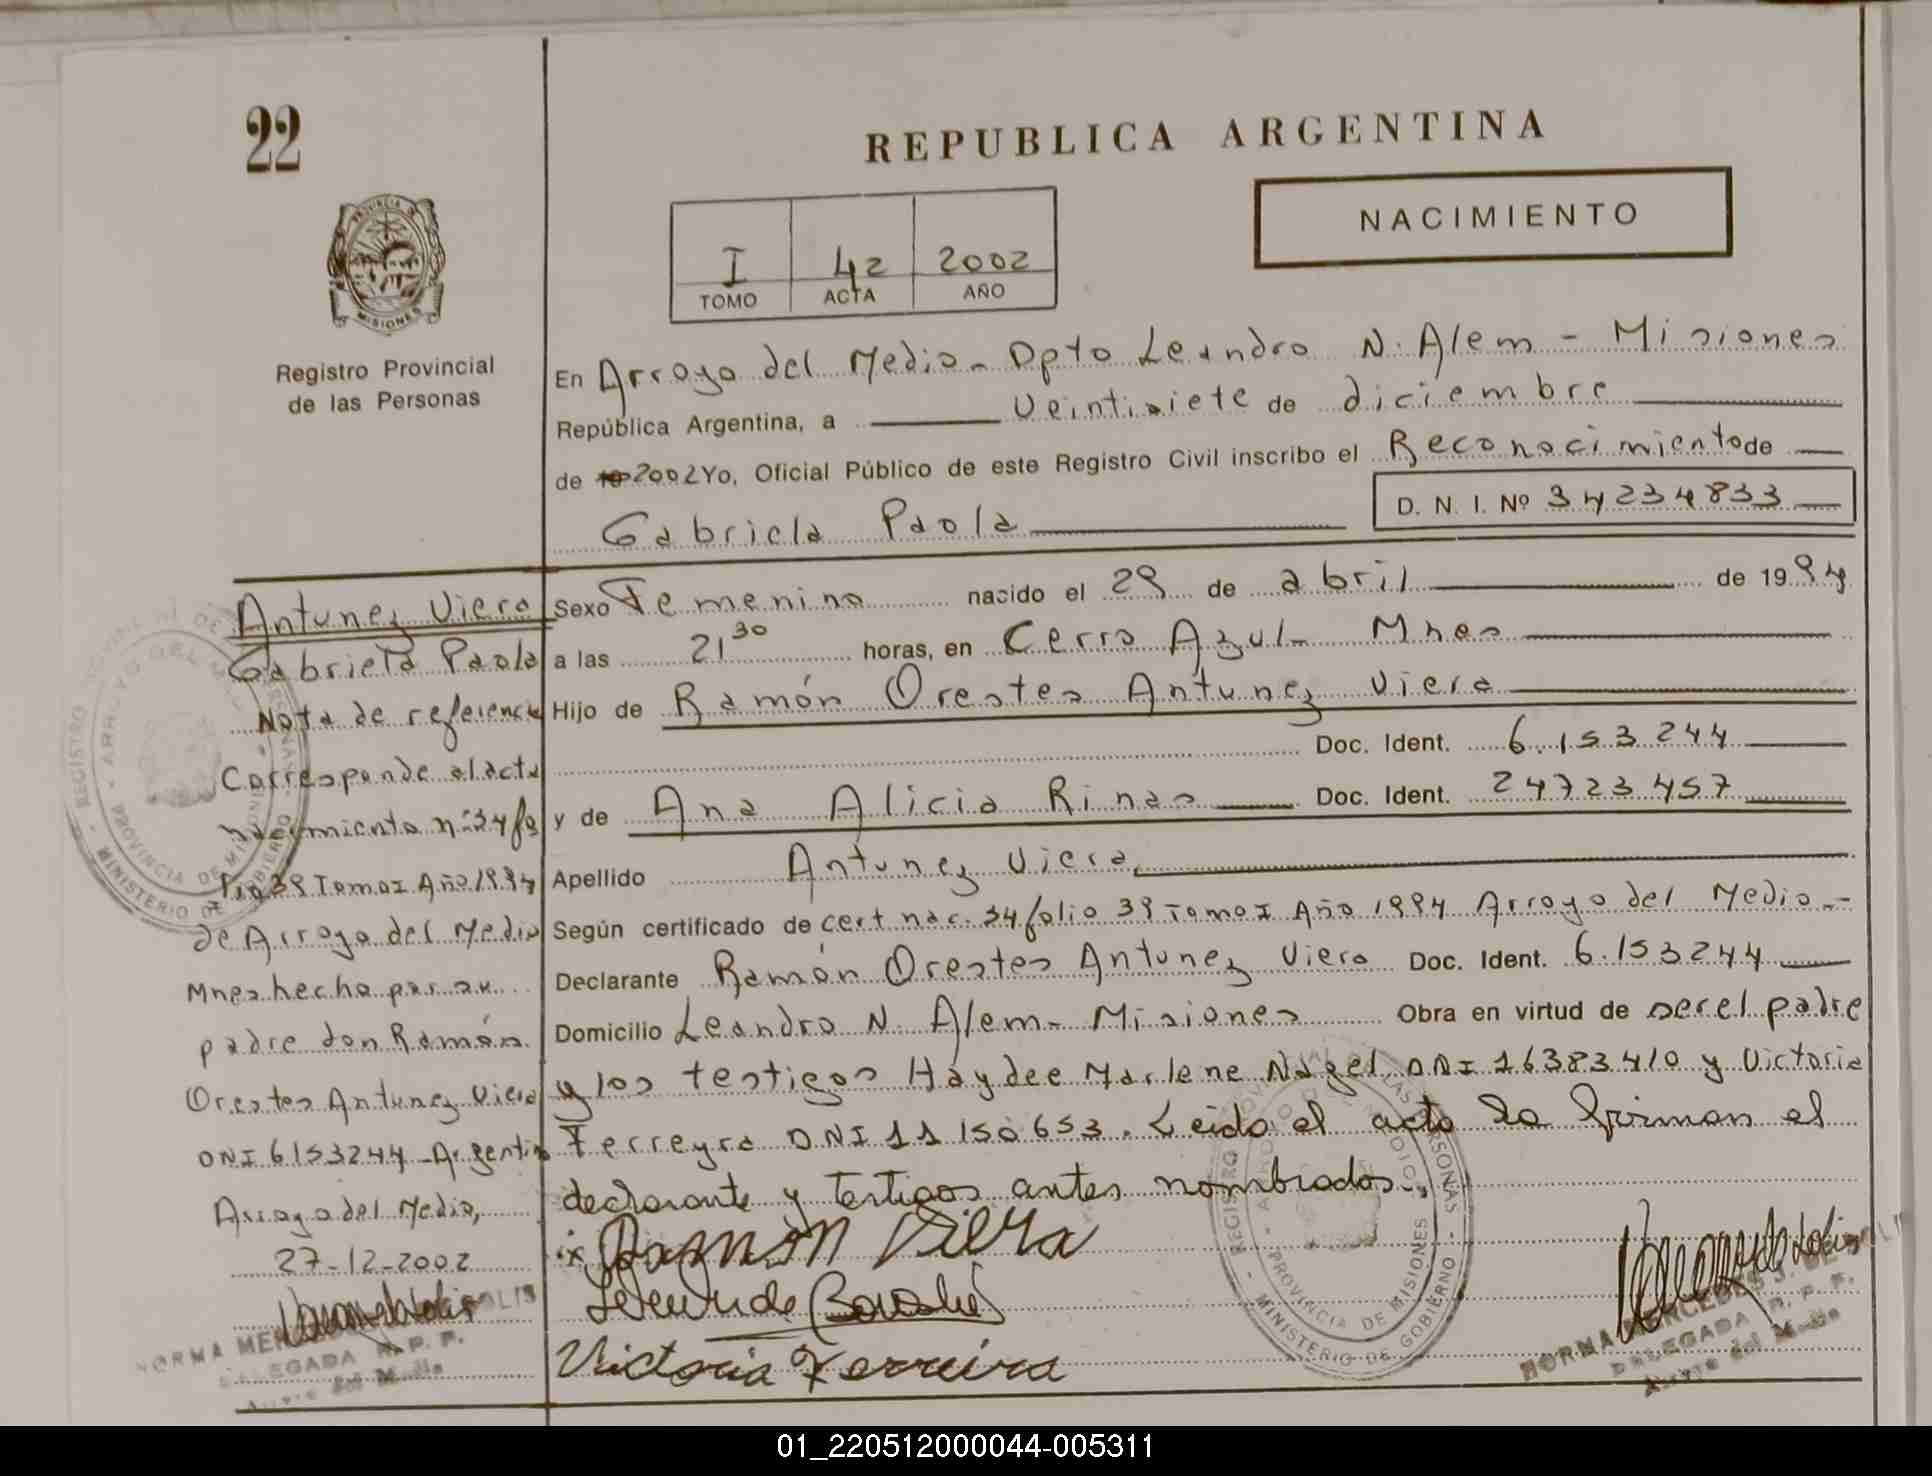 22
REPUBLICA ARGENTINA
NACIMIENTO
I 42 2002
TOMO ACTA AÑO
PROVINCIA DE
MISIONES
Registro Provincial
de las Personas
En Arroyo del Medio - Dpto Leandro N. Alem - Misiones
República Argentina, a veintisiete de diciembre
de 19 2002 Yo, Oficial Público de este Registro Civil inscribo el Reconocimiento de
Gabriela Paola D. N. I. Nº 34234833
Antunez Viera
Gabriela Paola
Nota de referencia
Corresponde al acta
nacimiento nº 34 fo
lio 39 Tomo I Año 1994
de Arroyo del Medio
Mnes hecha por su
padre don Ramón
Orestes Antunez Viera
DNI 6153244 - Argentin
Arroyo del Medio,
27-12-2002
NORMA MERCEDES
DELEGADA R. P. P.
Arroyo del Medio
Sexo Femenino nacido el 29 de abril de 1994
a las 21 30 horas, en Cerro Azul - Mnes
Hijo de Ramón Orestes Antunez Viera
Doc. Ident. 6.153244
y de Ana Alicia Rinas Doc. Ident. 24723457
Apellido Antunez Viera
Según certificado de cert nac. 34 folio 39 Tomo I Año 1994 Arroyo del Medio --
Declarante Ramón Orestes Antunez Viera Doc. Ident. 6.153244
Domicilio Leandro N. Alem - Misiones Obra en virtud de ser el padre
y los testigos Haydee Marlene Nagel DNI 16383410 y Victoria
Ferreyra DNI 11150653. Leido el acta la firman el
declarante y testigos antes nombrados.,
Ramon Viera
Victoria Ferreira
REGISTRO PROVINCIAL DE LAS PERSONAS
ARROYO DEL MEDIO
PROVINCIA DE MISIONES
MINISTERIO DE GOBIERNO
NORMA MERCEDES J. DE
DELEGADA R. P. P.
Arroyo del Medio
01_220512000044-005311